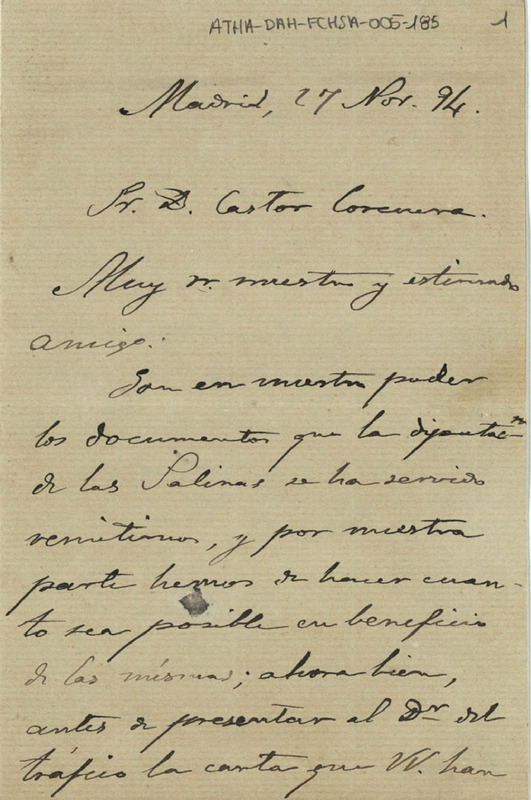 ATHA-DAH-FCHSA-005-185 1
Madrid, 27 Nov. 94.
Sr. D. Castor Corcuera.
Muy sr. nuestro y estimado
amigo:
Son en nuestro poder
los documentos que la diputacn
de las Salinas se ha servido
remitirnos, y por nuestra
parte hemos de hacer cuan-
to sea posible en beneficio
de las mismas; ahora bien,
antes de presentar al Dr del
tráfico la carta que VV. han